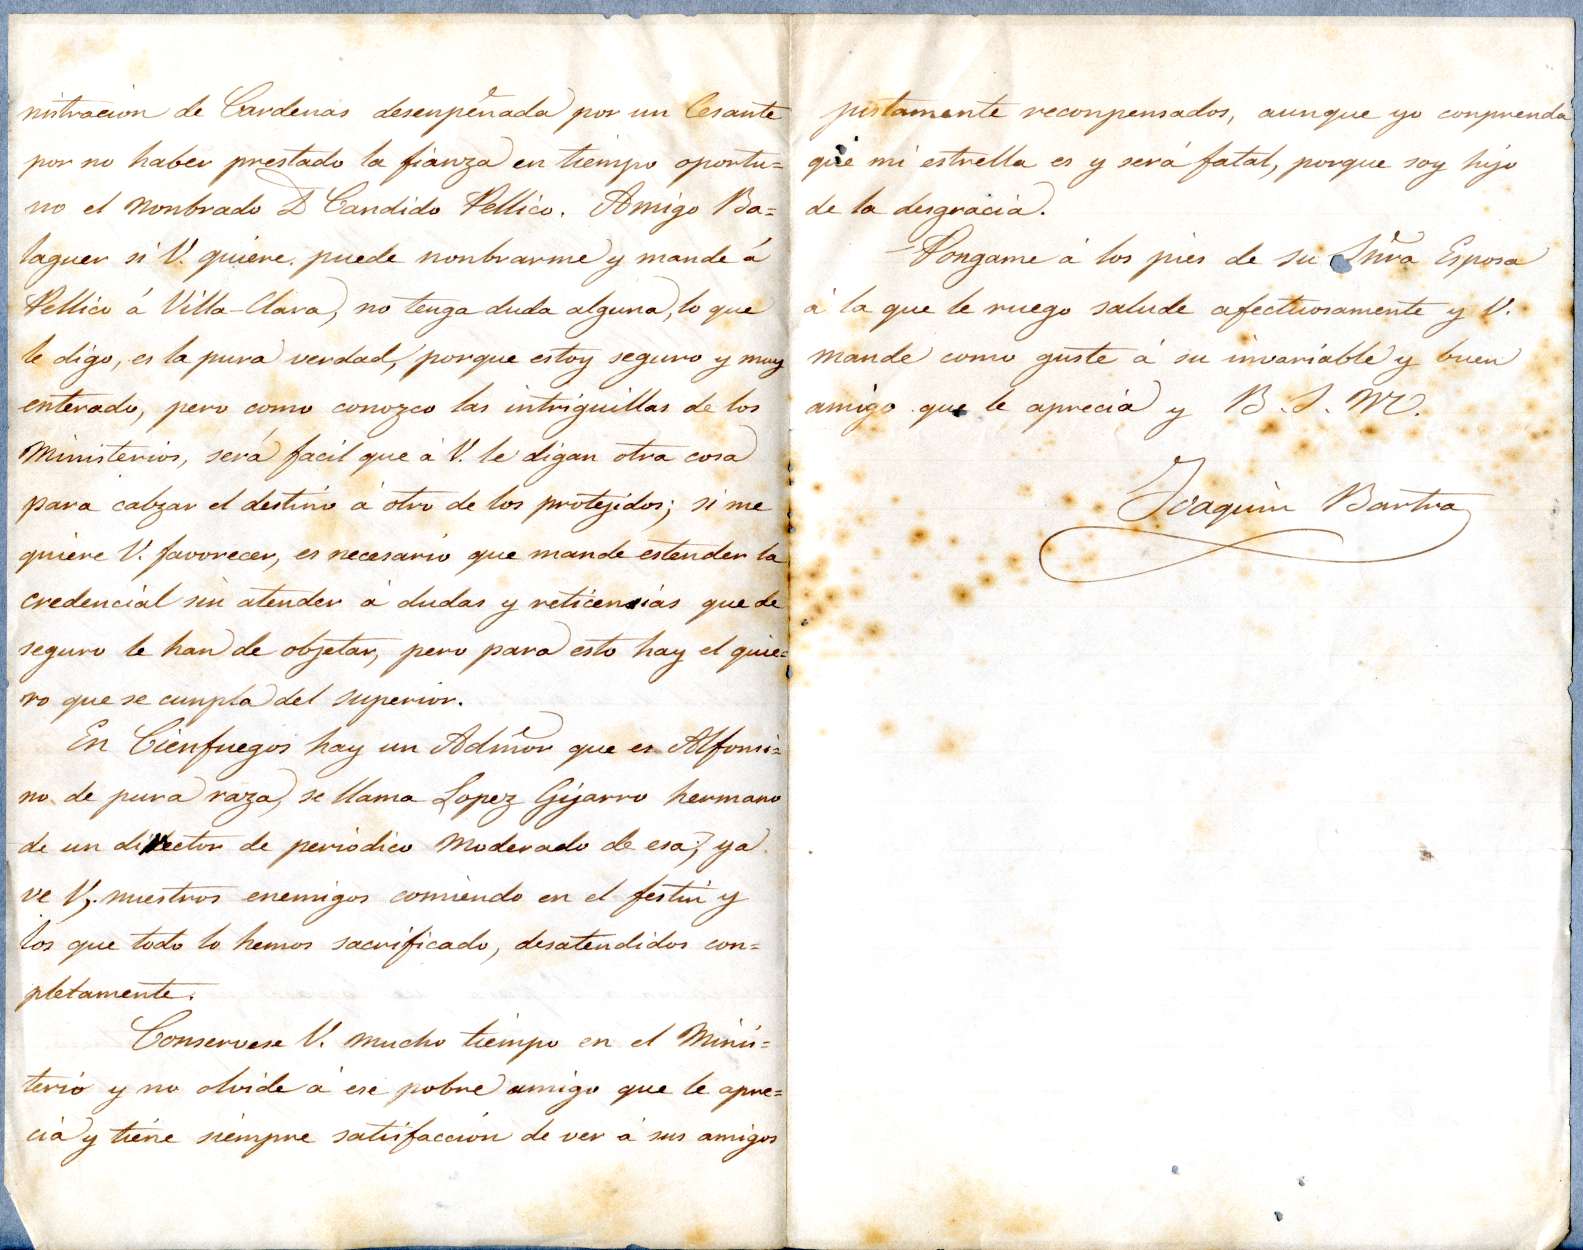 nistracion de Cardenas desenpeñada por un Cesante
por no haber prestado la fianza en tiempo oportu=
no el nonbrado D Candido Pellico. Amigo Ba=
laguer si V. quiere puede nonbrarme y mande á
Pellico á Villa-Clara, no tenga duda alguna, lo que
le digo, es la pura verdad, porque estoy seguro y muy
enterado, pero como conozco las intriguillas de los
Ministerios, será facil que á V. le digan otra cosa
para calzar el destino á otro de los protejidos; si me
quiere V. favorecer, es necesario que mande estender la
credencial sin atender á dudas y reticensias que de
seguro le han de objetar, pero para esto hay el quie=
ro que se cunpla del superior.
En Cienfuegos hay un Admor que es Alfonsi=
no de pura raza, se llama Lopez Gijarro hermano
de un director de periódico Moderado de esa, ya
ve V, nuestros enemigos comiendo en el festin y
los que todo lo hemos sacrificado, desatendidos con=
pletamente.
Conservese V. mucho tiempo en el Minis=
terio y no olvide á ese pobre amigo que le apre=
cia y tiene siempre satisfacción de ver á sus amigos
justamente reconpensados, aunque yo conprenda
que mi estrella es y será fatal, porque soy hijo
de la desgracia.
Pongame á los pies de su Snra Esposa
á la que le ruego salude afectuosamente y V.
mande como guste á su invariable y buen
amigo que le aprecia y B. S. M.
Joaquin Bartra